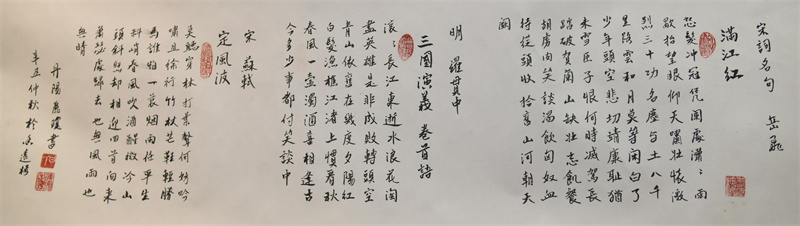 宋詞名句 岳飛
滿江紅
怒髮冲冠凭闌處瀟ミ雨
歇抬望眼仰天嘯壯懷激
烈三十功名塵与土八千
里路雲和月莫等閑白了
少年頭空悲切靖康恥猶
未雪臣子恨何時滅駕長
踏破賀蘭山缺壯志飢餐
胡虜肉笑談渴飲匈奴血
待從頭收拾舊山河朝天
闕
明 羅貫中
三國演義 卷首詩
滾ミ長江東逝水浪花淘
盡英雄是非成敗轉頭空
青山依舊在幾度夕陽紅
白髮漁樵江渚上慣看秋
春風一壺濁酒喜相逢古
今多少事都付笑談中
宋 蘇軾
定風波
莫聽穿林打葉聲何妨吟
嘯且徐行竹杖芒鞋輕勝
馬誰怕一蓑烟雨任平生
料峭春風吹酒醒微冷山
頭斜照却相迎回首向來
蕭瑟處歸去也無風雨也
無晴
丹陽
辛丑仲秋於